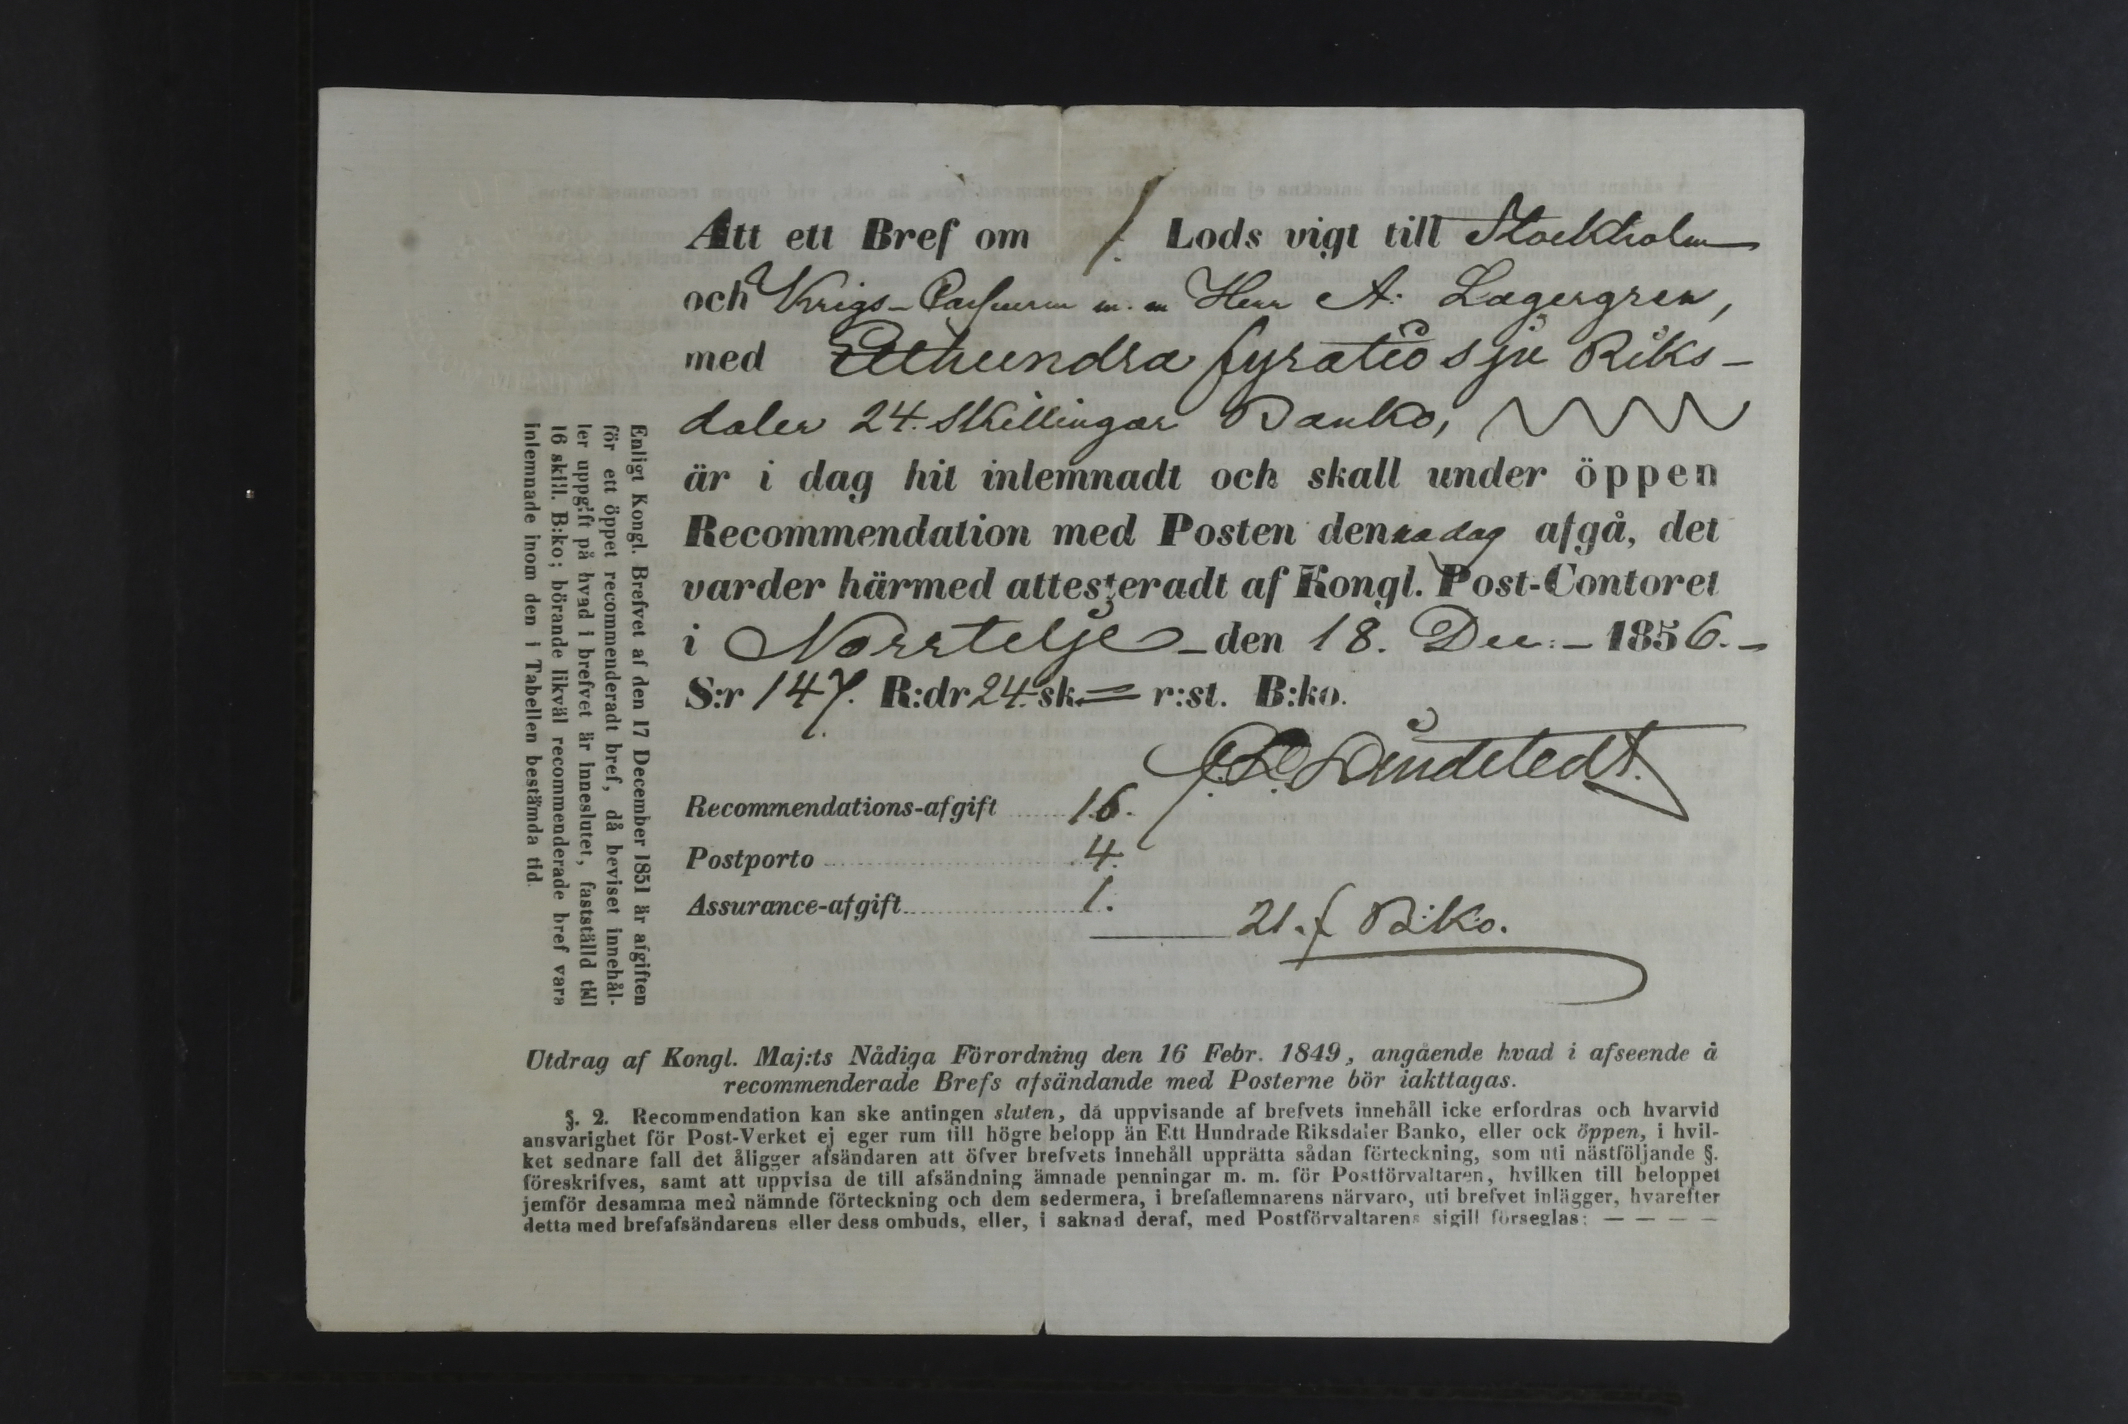 Att ett Bref om 1. Lods vigt till Stockholm
och Krigs- m. m Herr A: Lagergren,
med Etthundra fyratio sju Riks-
daler 24. Skillingar Banko,
är i dag hit inlemnadt och skall under öppen
Recommendation med Posten denna dag afgå, det
varder härmed attesteradt af Kongl. Post-Contoret
i Norrtelje den 18. Dec:- 1856.-
S:r 147. R:dr 24. sk. = r:st. B:ko.
Sundstedt.
Recommendations-afgift 16.
Postporto 4.
Assurance-afgift 1.
21. B:ko.
Enligt Kongl. Brefvet af den 17 December 1851 är afgiften
för ett öppet recommenderadt bref, då beviset innehål-
ler uppgift på hvad i brefvet är inneslutet, fastställd till
16 skill. B:ko; börande likväl recommenderade bref vara
inlemnade inom den i Tabellen bestämda tid.
Utdrag af Kongl. Maj:ts Nådiga Förordning den 16 Febr. 1849, angående hvad i afseende å
recommenderade Brefs afsändande med Posterne bör iakttagas.
§. 2. Recommendation kan ske antingen sluten, då uppvisande af brefvets innehåll icke erfordras och hvarvid
ansvarighet för Post-Verket ej eger rum till högre belopp än Ett Hundrade Riksdaler Banko, eller ock öppen, i hvil-
ket sednare fall det åligger afsändaren att öfver brefvets innehåll upprätta sådan förteckning, som uti nästföljande §.
föreskrifves, samt att uppvisa de till afsändning ämnade penningar m. m. för Postförvaltaren, hvilken till beloppet
jemför desamma med nämnde förteckning och dem sedermera, i brefaflemnarens närvaro, uti brefvet inlägger, hvarefter
detta med brefafsändarens eller dess ombuds, eller, i saknad deraf, med Postförvaltarens sigill förseglas: — — — —